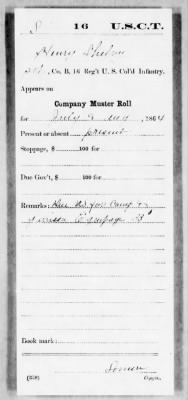 S 16 U.S.C.T.
Henry Shelby
Sgt., Co. B, 16 Reg't U. S. Col'd Infantry.
Appears on
Company Muster Roll
for July & Aug, 1864
Present or absent present
Stoppage, $ 100 for
Due Gov't, $ 100 for
Remarks: Due US for Camp &
Garrison Equipage
Book mark:
(358) Copyist.